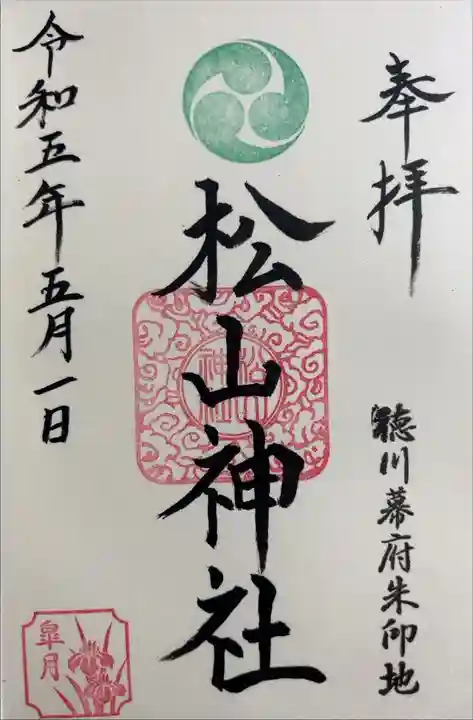 奉拝
徳川幕府朱印地
松山神社
松山
神社
令和五年五月一日
皐月